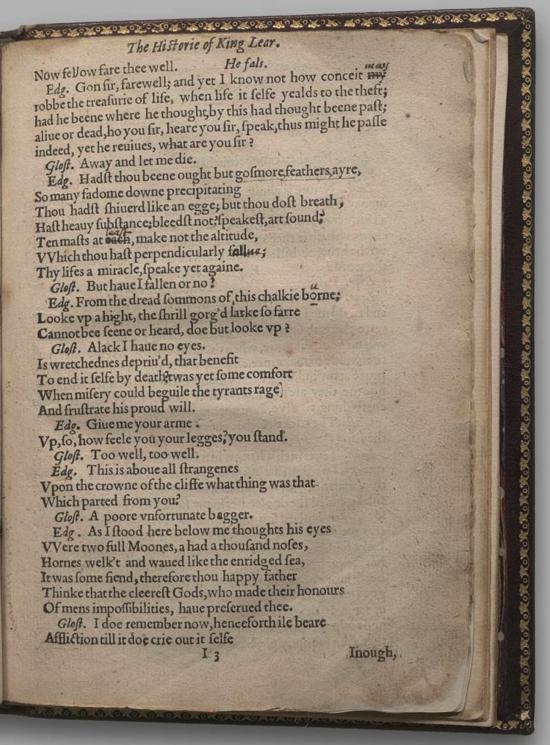 The Historie of King Lear.
Now fellow fare thee well. He fals.
may
Edg. Gon sir, farewell; and yet I know not how conceit my
robbe the treasurie of life, when life it selfe yealds to the theft;
had he beene where he thought, by this had thought beene past;
aliue or dead, ho you sir, heare you sir, speak, thus might he passe
indeed, yet he reuiues, what are you sir?
Glost. Away and let me die.
Edg. Hadst thou beene ought but gosmore, feathers, ayre,
So many fadome downe precipitating
Thou hadst shiuerd like an egge; but thou dost breath,
Hast heauy substance; bleedst not? speakest, art sound?
Ten masts at each, make not the altitude,
VVhich thou hast perpendicularly
Thy lifes a miracle, speake yet againe.
Glost. But haue I fallen or no?
u
Edg. From the dread sommons of, this chalkie borne;
Looke vp a hight, the shrill gorg'd larke so farre
Cannot bee seene or heard, doe but looke vp?
Glost. Alack I haue no eyes.
Is wretchednes depriu'd, that benefit
To end it selfe by death; twas yet some comfort
When misery could beguile the tyrants rage
And frustrate his proud will.
Edg. Giue me your arme.
Vp, so, how feele you your legges? you stand.
Glost. Too well, too well.
Edg. This is aboue all strangenes
Vpon the crowne of the cliffe what thing was that
Which parted from you?
Glost. A poore vnfortunate bagger.
Edg. As I stood here below me thoughts his eyes
VVere two full Moones, a had a thousand noses,
Hornes welk't and waued like the enridged sea,
It was some fiend, therefore thou happy father
Thinke that the cleerest Gods, who made their honours
Of mens impossibilities, haue preserued thee.
Glost. I doe remember now, henceforth ile beare
Affliction till it doe crie out it selfe
I 3 Inough,